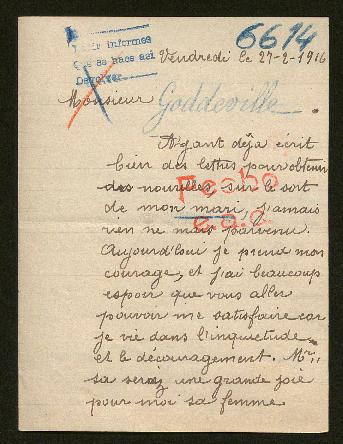 6614
Pedir informes
Que se hace así
Devolver
Vendredi le 27-2-1916
Monsieur
Goddeville
Ayant déja écrit
bien des lettres pour obtenir
des nouvelles sur le sort
de mon mari, j'amais
rien ne mais parvenu.
Aujourd'oui je prend mon
courage, et j'ai beaucoup
espoir que vous aller
pouvoir me satisfaire car
je vie dans l'inquietude
et le découragement. Mr,,
sa serez une grande joie
pour moi sa femme